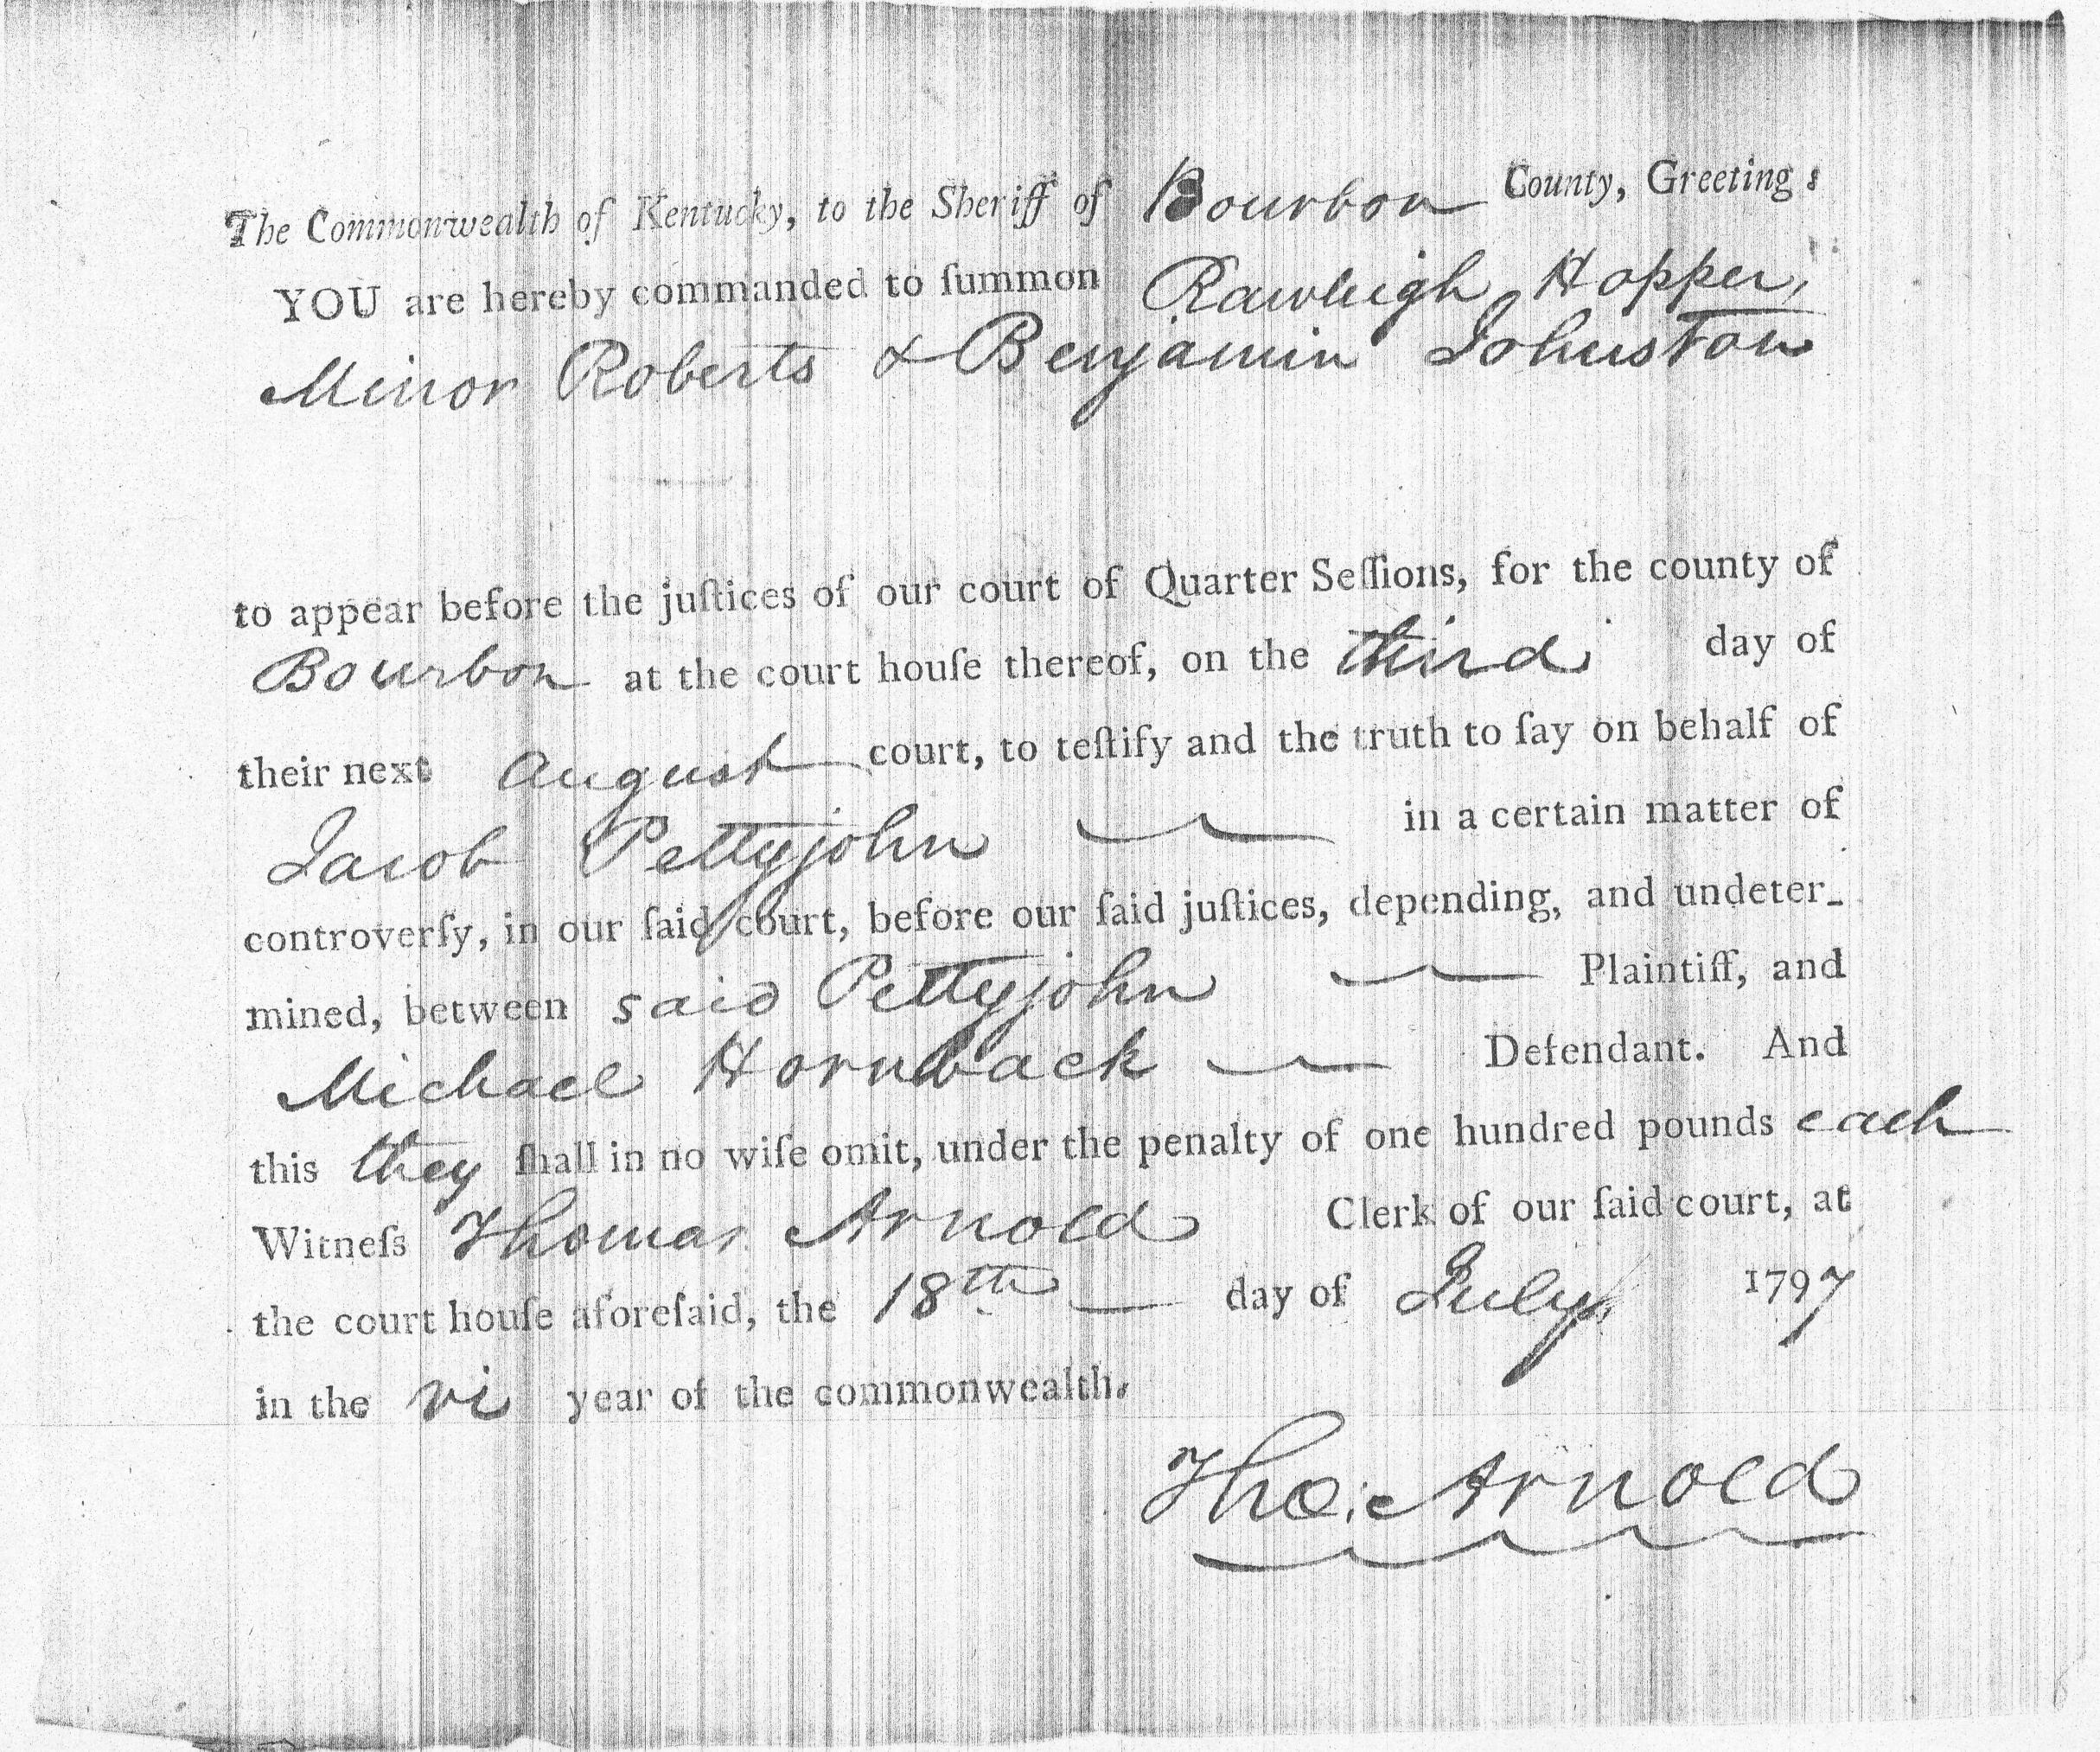 The Commonwealth of Kentucky, to the Sheriff of Bourbon County, Greeting:
YOU are hereby commanded to ſummon Rawleigh Hopper,
Minor Roberts & Benjamin Johnston
to appear before the juſtices of our court of Quarter Seſſions, for the county of
Bourbon at the court houſe thereof, on the third day of
their next August court, to teſtify and the truth to ſay on behalf of
Jacob Pettyjohn in a certain matter of
controverſy, in our ſaid court, before our ſaid juſtices, depending, and undeter-
mined, between said Pettyjohn Plaintiff, and
Michael Hornback Defendant. And
this they ſhall in no wiſe omit, under the penalty of one hundred pounds each
Witneſs Thomas Arnold Clerk of our ſaid court, at
the court houſe aforeſaid, the 18th day of July 1797
in the vi year of the commonwealth.
Tho: Arnold